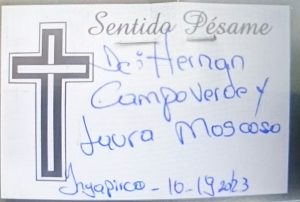 Sentido Pésame
De: Hernan
Campoverde y
Laura Moscoso
Ingapirca - 10-19 2023